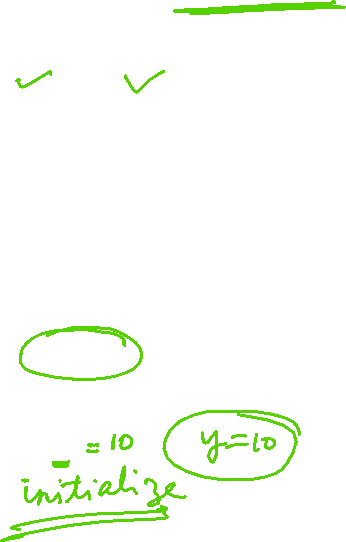 = 10 y=10
initialize